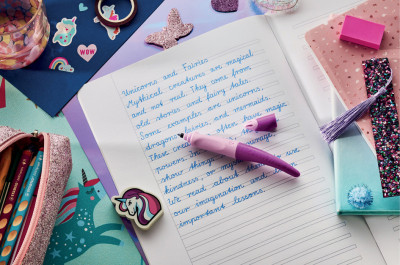 WOW
Unicorns and Fairies
Mythical creatures are magical
and not real. They come from
old stories and fairy tales.
Some examples are unicorns,
dragons, fairies, and mermaids.
These often have magic
powers.
show things
kindness, or
We read about
our imagination and
important lessons.